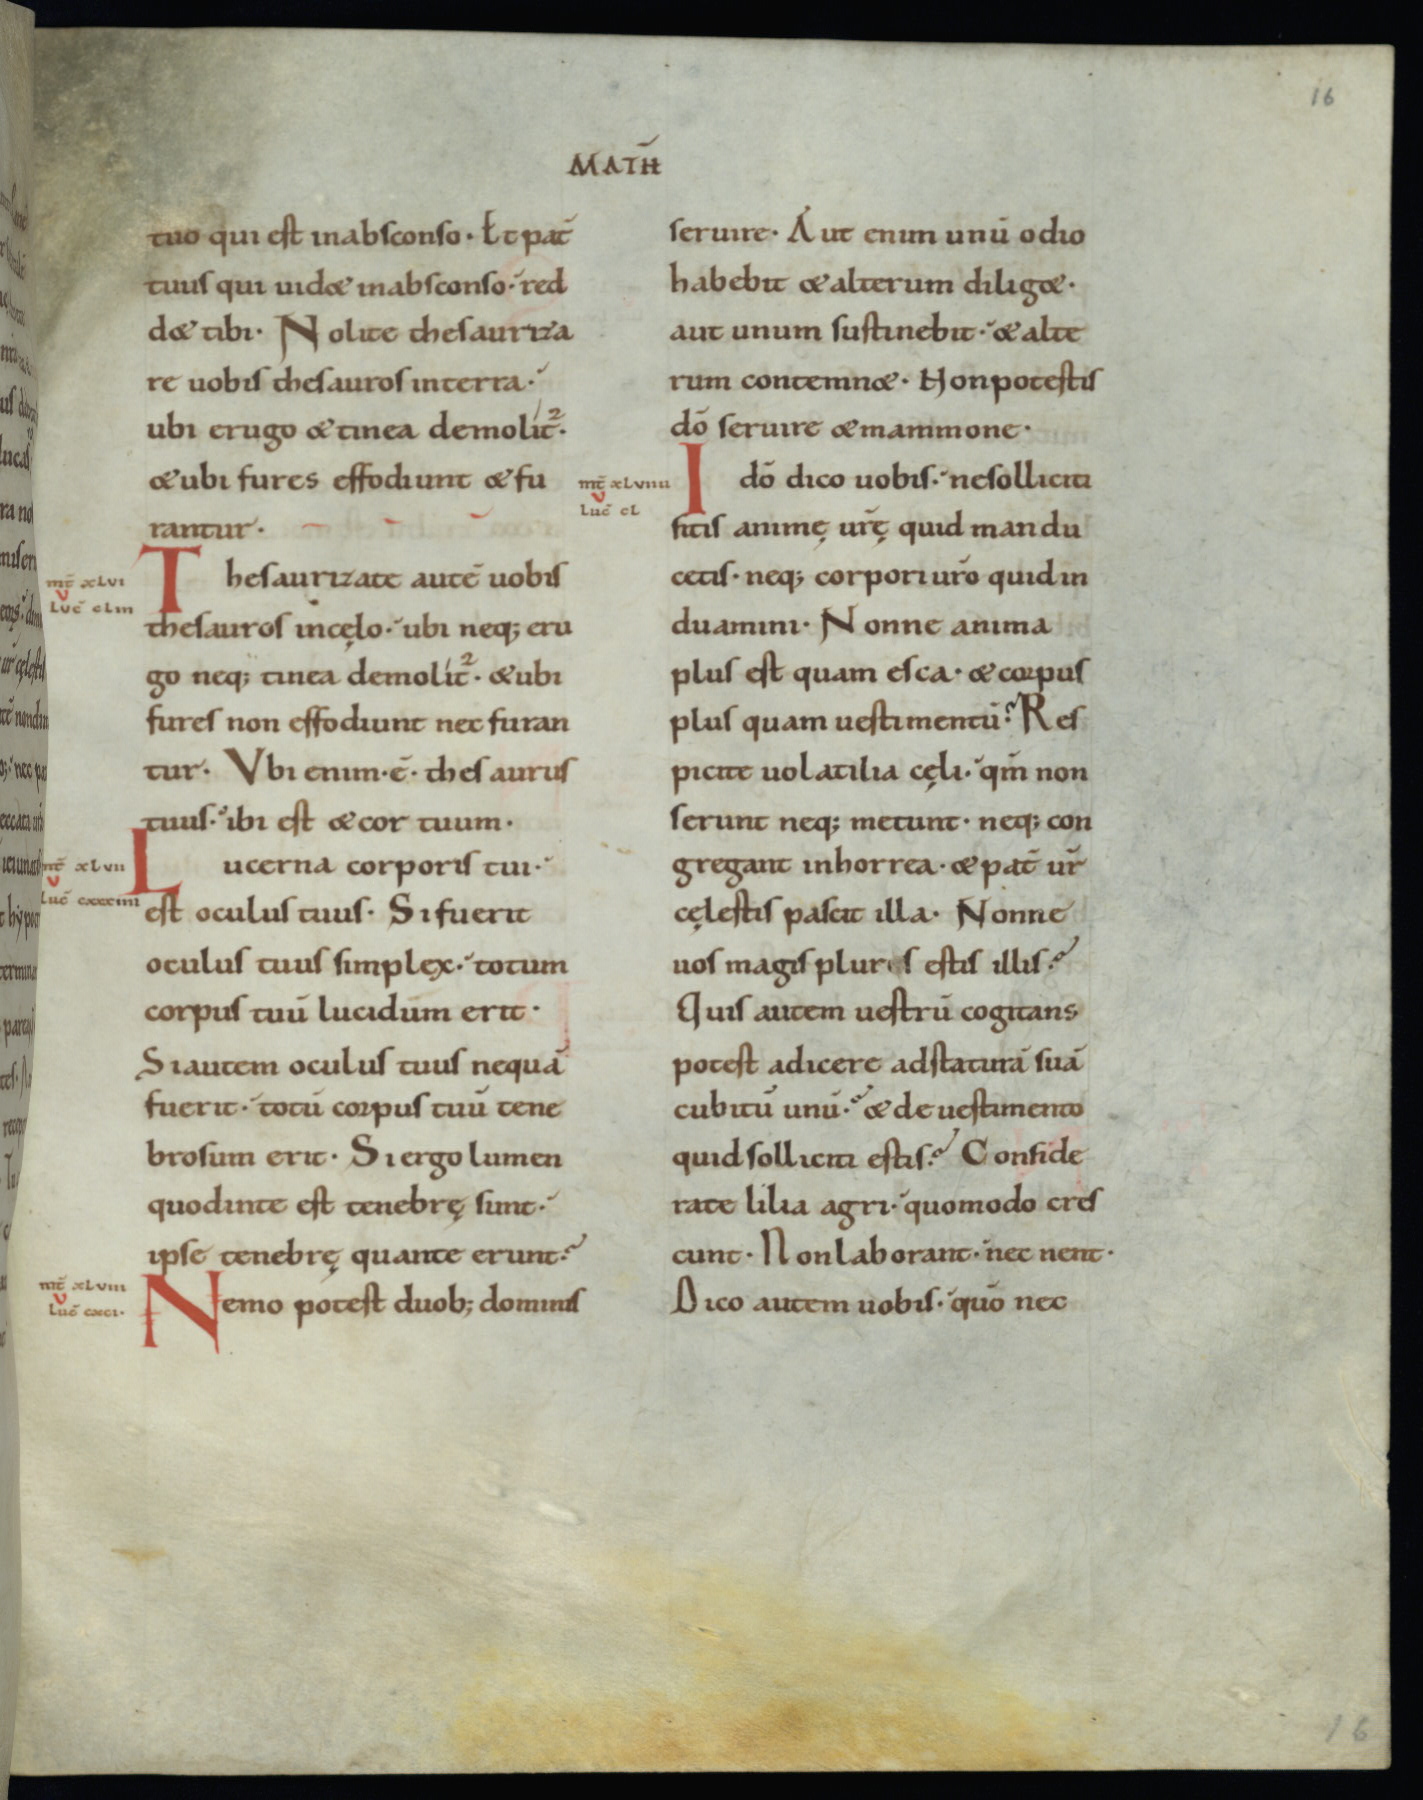 16
MATH̄
tuo qui est inabsconso· Et pat̄
tuus qui uid& inabsconso· red
d& tibi· Nolite thesauriza
re uobis thesauros interra·
ubi erugo &tinea demolit̄·
&ubi fures effodiunt &fu
rantur·
mt̄ xlvi
v
luc̄ cliii
Thesaurizate autē uobis
thesauros incęlo· ubi neq; eru
go neq; tinea demolit̄· &ubi
fures non effodiunt nec furan
tur· Vbi enim·ē· thesaurus
tuus· ibi est &cor tuum·
mt̄ xlvii
v
luc̄ cxxxiiii
Lucerna corporis tui·
est oculus tuus· Si fuerit
oculus tuus simplex· totum
corpus tuū lucidum erit·
Siautem oculus tuus nequā
fuerit· totū corpus tuū tene
brosum erit· Si ergo lumen
quodinte est tenebrę sunt·
ipse tenebrę quante erunt·
mt̄ xlviii
v
luc̄ cxci·
Nemo potest duob; dominis
seruire· Aut enim unū odio
habebit &alterum dilig&·
aut unum sustinebit· &alte
rum contemn&· Nonpotestis
dō seruire &mammone·
mt̄ xlviiii
v
luc̄ cl
Idō dico uobis· nesolliciti
sitis animę ur̄ę quid mandu
cetis· neq; corpori ur̄o quid in
duamini· Nonne anima
plus est quam esca· &corpus
plus quam uestimentū? Res
picite uolatilia cęli· qm̄ non
serunt neq; metunt· neq; con
gregant inhorrea· &pat̄ ur̄
cęlestis pascit illa· Nonne
uos magis plures estis illis?
Quis autem uestrū cogitans
potest adicere adstaturā suā
cubitū unū? &de uestimento
quid solliciti estis? Conside
rate lilia agri· quomodo cres
cunt· Nonlaborant· nec nent·
Dico autem uobis· quō nec
16